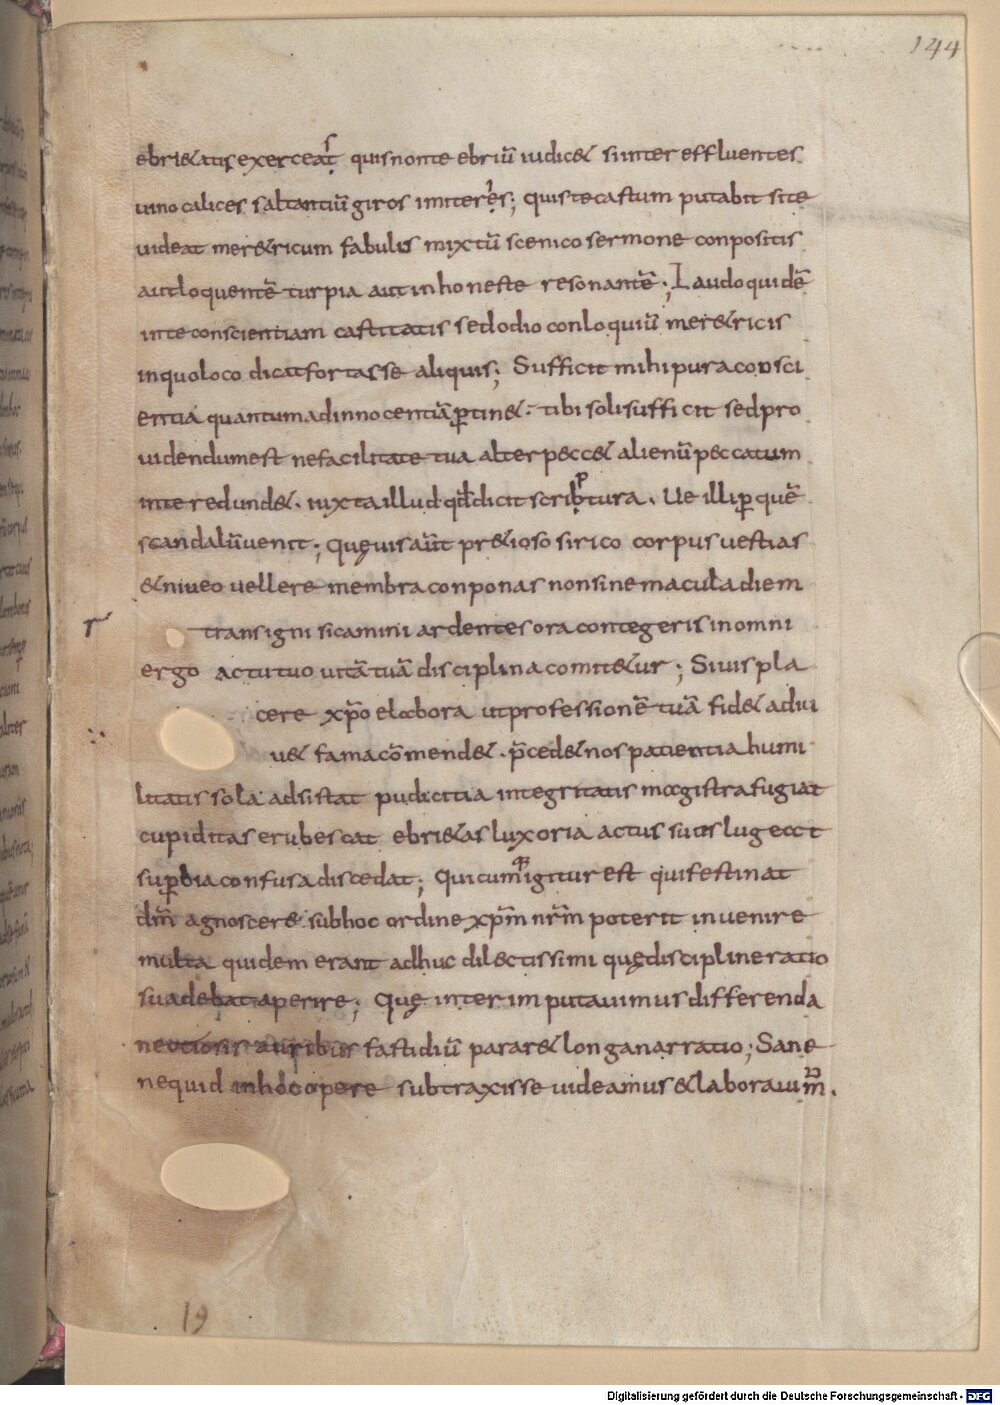 144
ebri&atis exerceat̄ quis non te ebriū iudic& si inter effluentes
uino calices saltantiū giros imiteres; quis te castum putabit si te
uideat mer&ricum fabulis mixtū scenico sermone conpositis
aut loquentē turpia aut inhoneste resonantē; Laudo quidē
in te conscientiam castitatis sed odio conloquiū mer&ricis
in quo loco dicat fortasse aliquis; Sufficit mihi pura consci
entia quantum ad innocentiā ꝑtin&. tibi soli sufficit sed pro
uidendum est ne facilitate tua alter pecc& alienū peccatum
in te redund&. iuxta illud qđ dicit scribtura. Ue illi ꝑ quē
scandalū uenit; Quęuis aūt pr&ioso sirico corpus uestias
& niueo uellere membra conponas non sine macula diem
r
transigni si camini ardentes ora contegeris in omni
ergo actu tuo uitā tuā disciplina comit&ur; Si uis pla
cere xp̄o elabora ut professionē tuā fid& adiu
u& fama cōmend&. p̄ced& nos patientia humi
litatis sola adsistat pudicitia integritatis magistra fugiat
cupiditas erubescat ebri&as luxoria actus suus lugeat
suꝑbia confusa discedat; Qui cumq; igitur est qui festinat
dm̄ agnoscere& sub hoc ordine xp̄m nr̄m poterit inuenire
multa quidem erant adhuc dilectissimi quę discipline ratio
suadebat aperire; Quę interim putauimus differenda
ne otiosis auribus fastidiū parar& longa narratio; Sane
ne quid in hoc opere subtraxisse uideamus & laborauim̄.
19
Digitalisierung gefördert durch die Deutsche Forschungsgemeinschaft - DFG